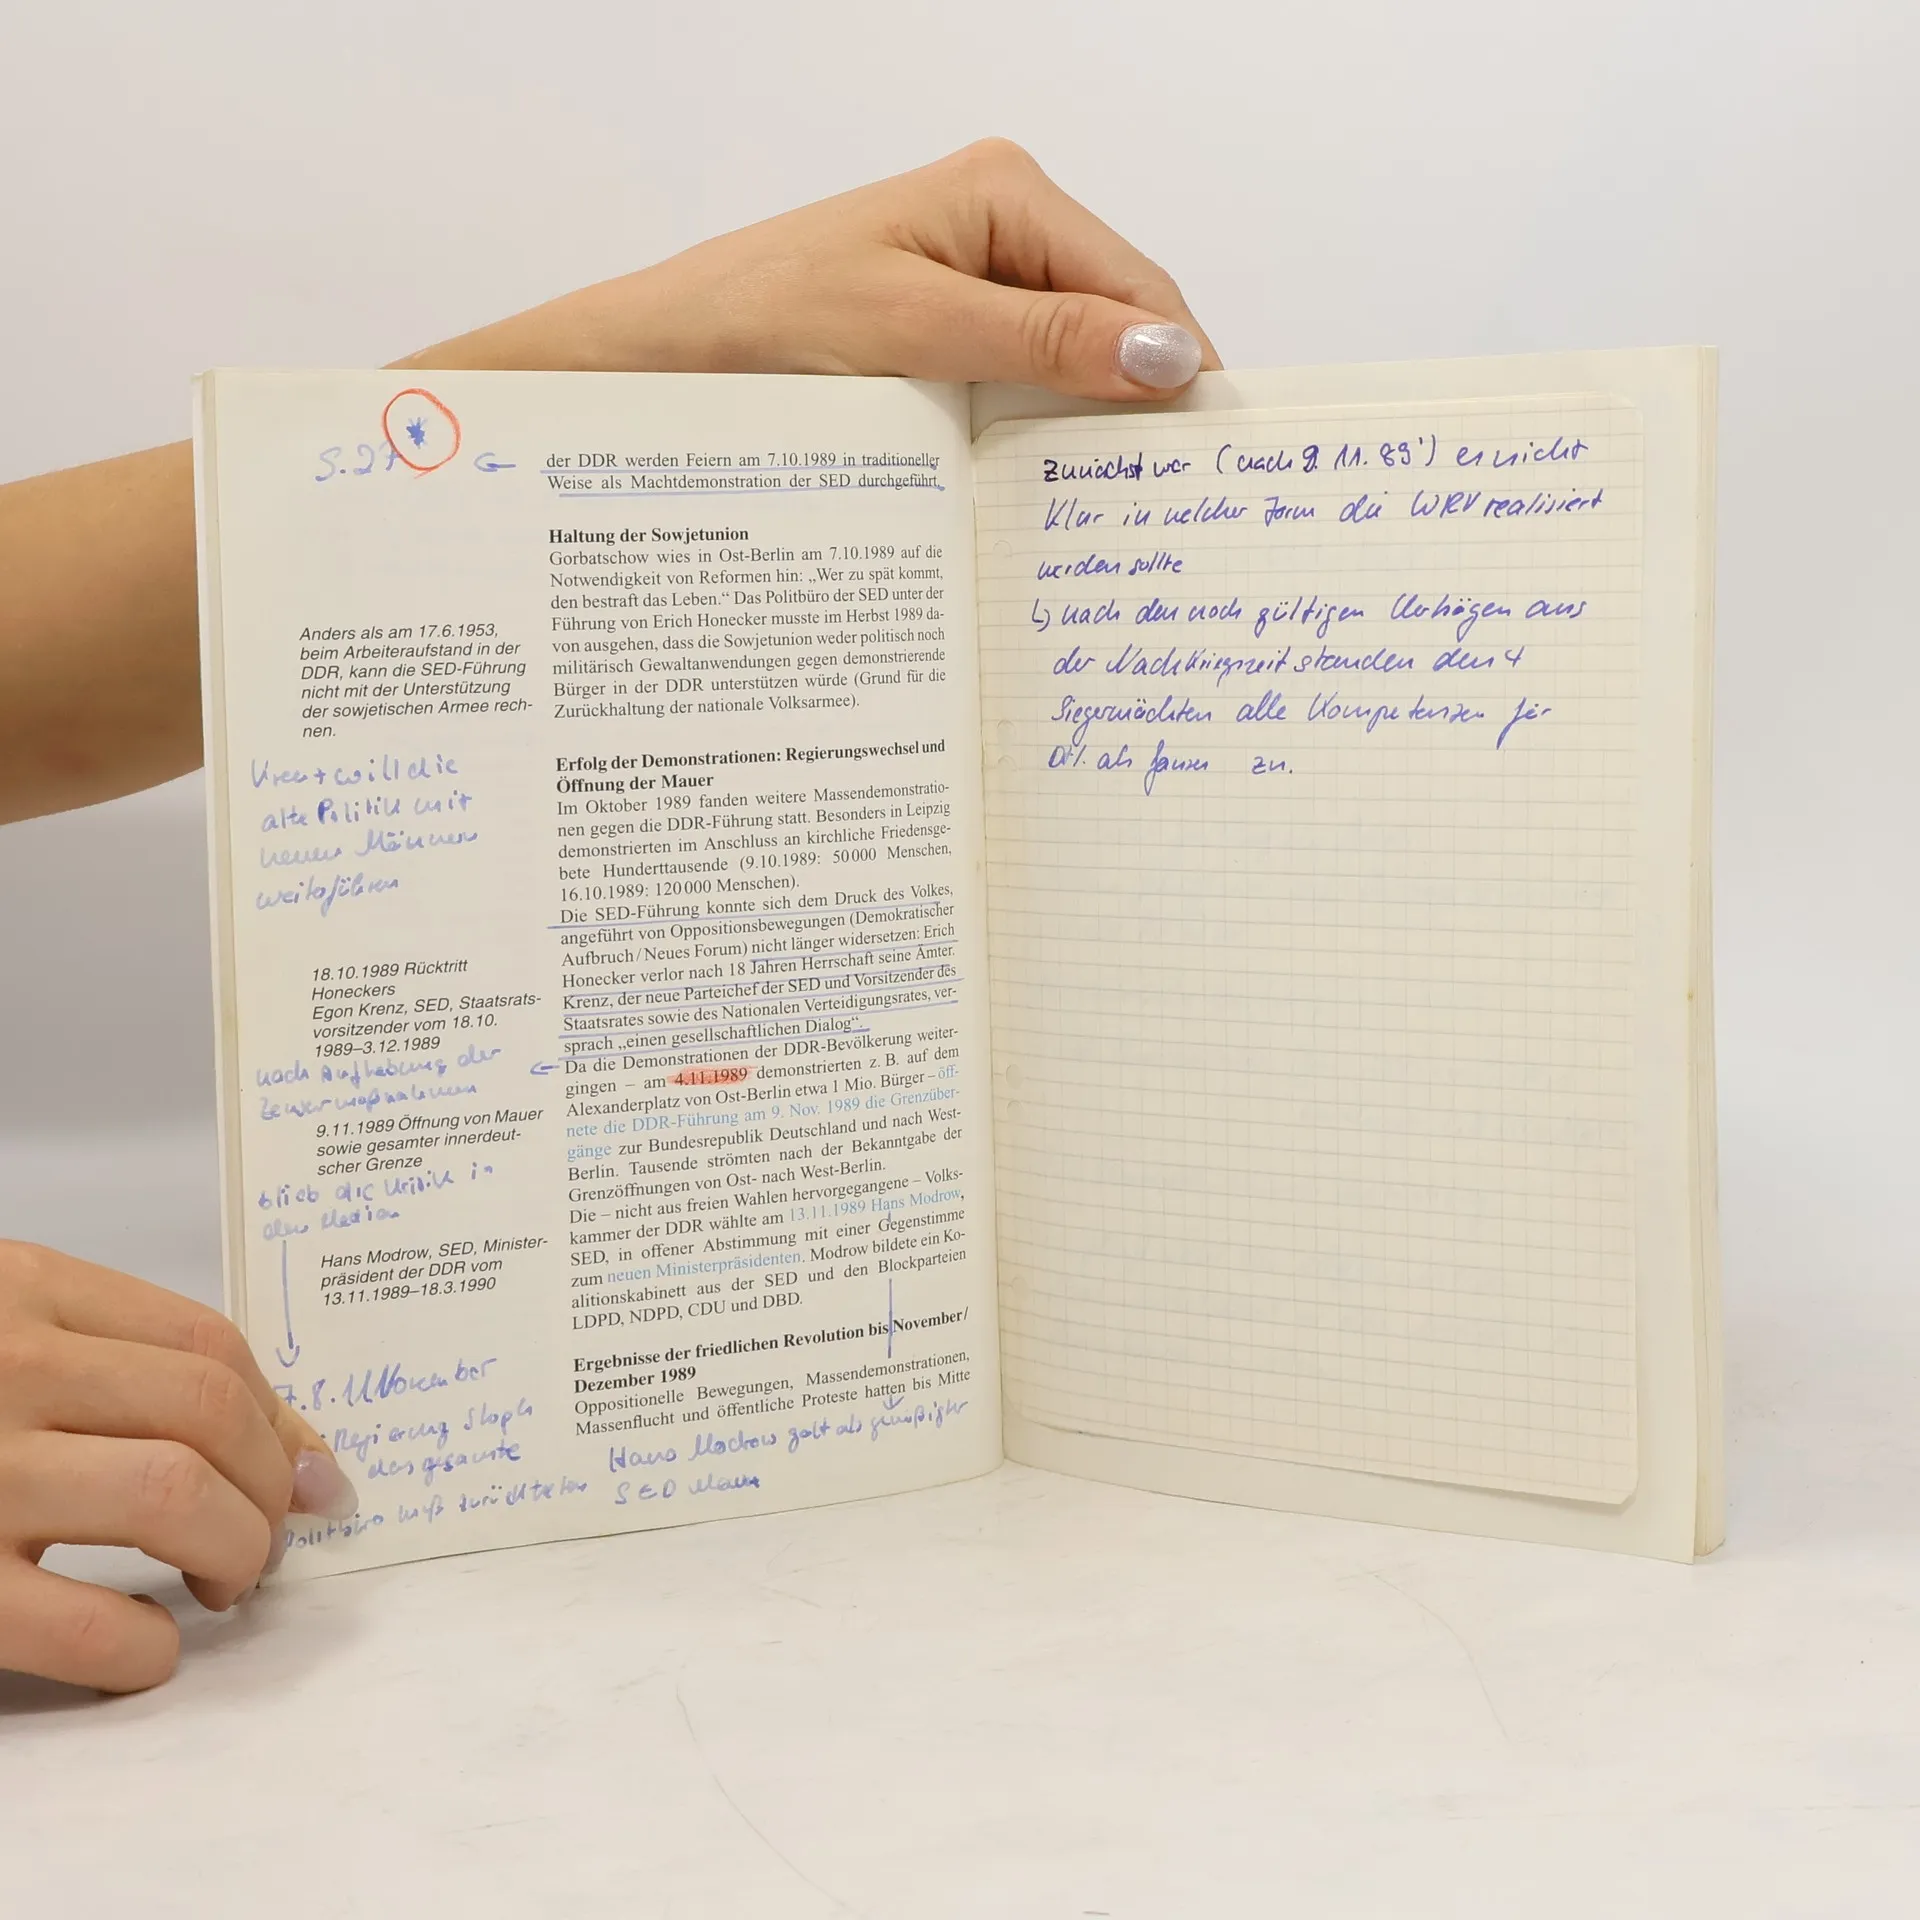 S. 27 *
der DDR werden Feiern am 7.10.1989 in traditioneller
Weise als Machtdemonstration der SED durchgeführt.
Haltung der Sowjetunion
Gorbatschow wies in Ost-Berlin am 7.10.1989 auf die
Notwendigkeit von Reformen hin: „Wer zu spät kommt,
den bestraft das Leben.“ Das Politbüro der SED unter der
Führung von Erich Honecker musste im Herbst 1989 da-
von ausgehen, dass die Sowjetunion weder politisch noch
militärisch Gewaltanwendungen gegen demonstrierende
Bürger in der DDR unterstützen würde (Grund für die
Zurückhaltung der nationale Volksarmee).
Anders als am 17.6.1953,
beim Arbeiteraufstand in der
DDR, kann die SED-Führung
nicht mit der Unterstützung
der sowjetischen Armee rech-
nen.
Krenz will die
alte Politik mit
neuen Männern
weiterführen
Erfolg der Demonstrationen: Regierungswechsel und
Öffnung der Mauer
Im Oktober 1989 fanden weitere Massendemonstratio-
nen gegen die DDR-Führung statt. Besonders in Leipzig
demonstrierten im Anschluss an kirchliche Friedensge-
bete Hunderttausende (9.10.1989: 50 000 Menschen,
16.10.1989: 120 000 Menschen).
Die SED-Führung konnte sich dem Druck des Volkes,
angeführt von Oppositionsbewegungen (Demokratischer
Aufbruch / Neues Forum) nicht länger widersetzen: Erich
Honecker verlor nach 18 Jahren Herrschaft seine Ämter.
Krenz, der neue Parteichef der SED und Vorsitzender des
Staatsrates sowie des Nationalen Verteidigungsrates, ver-
sprach „einen gesellschaftlichen Dialog“.
18.10.1989 Rücktritt
Honeckers
Egon Krenz, SED, Staatsrats-
vorsitzender vom 18.10.
1989–3.12.1989
nach Aufhebung der
Zensurmaßnahmen
9.11.1989 Öffnung von Mauer
sowie gesamter innerdeut-
scher Grenze
blieb die Kritik in
den Medien
Da die Demonstrationen der DDR-Bevölkerung weiter-
gingen – am 4.11.1989 demonstrierten z. B. auf dem
Alexanderplatz von Ost-Berlin etwa 1 Mio. Bürger – öff-
nete die DDR-Führung am 9. Nov. 1989 die Grenzüber-
gänge zur Bundesrepublik Deutschland und nach West-
Berlin. Tausende strömten nach der Bekanntgabe der
Grenzöffnungen von Ost- nach West-Berlin.
Die – nicht aus freien Wahlen hervorgegangene – Volks-
kammer der DDR wählte am 13.11.1989 Hans Modrow,
SED, in offener Abstimmung mit einer Gegenstimme
zum neuen Ministerpräsidenten. Modrow bildete ein Ko-
alitionskabinett aus der SED und den Blockparteien
LDPD, NDPD, CDU und DBD.
Hans Modrow, SED, Minister-
präsident der DDR vom
13.11.1989–18.3.1990
Ergebnisse der friedlichen Revolution bis November/
Dezember 1989
Oppositionelle Bewegungen, Massendemonstrationen,
Massenflucht und öffentliche Proteste hatten bis Mitte
7.8. November
Regierung Stoph
das gesamte
Politbüro muß zurücktreten
Hans Modrow galt als gemäßigter
SED Mann
Zunächst war (nach 9. 11. 89') es nicht
Klar in welcher Form die WRV realisiert
werden sollte
↳ nach den noch gültigen Verträgen aus
der Nachkriegszeit standen den 4
Siegermächten alle Kompetenzen für
Dtl. als Ganzes zu.